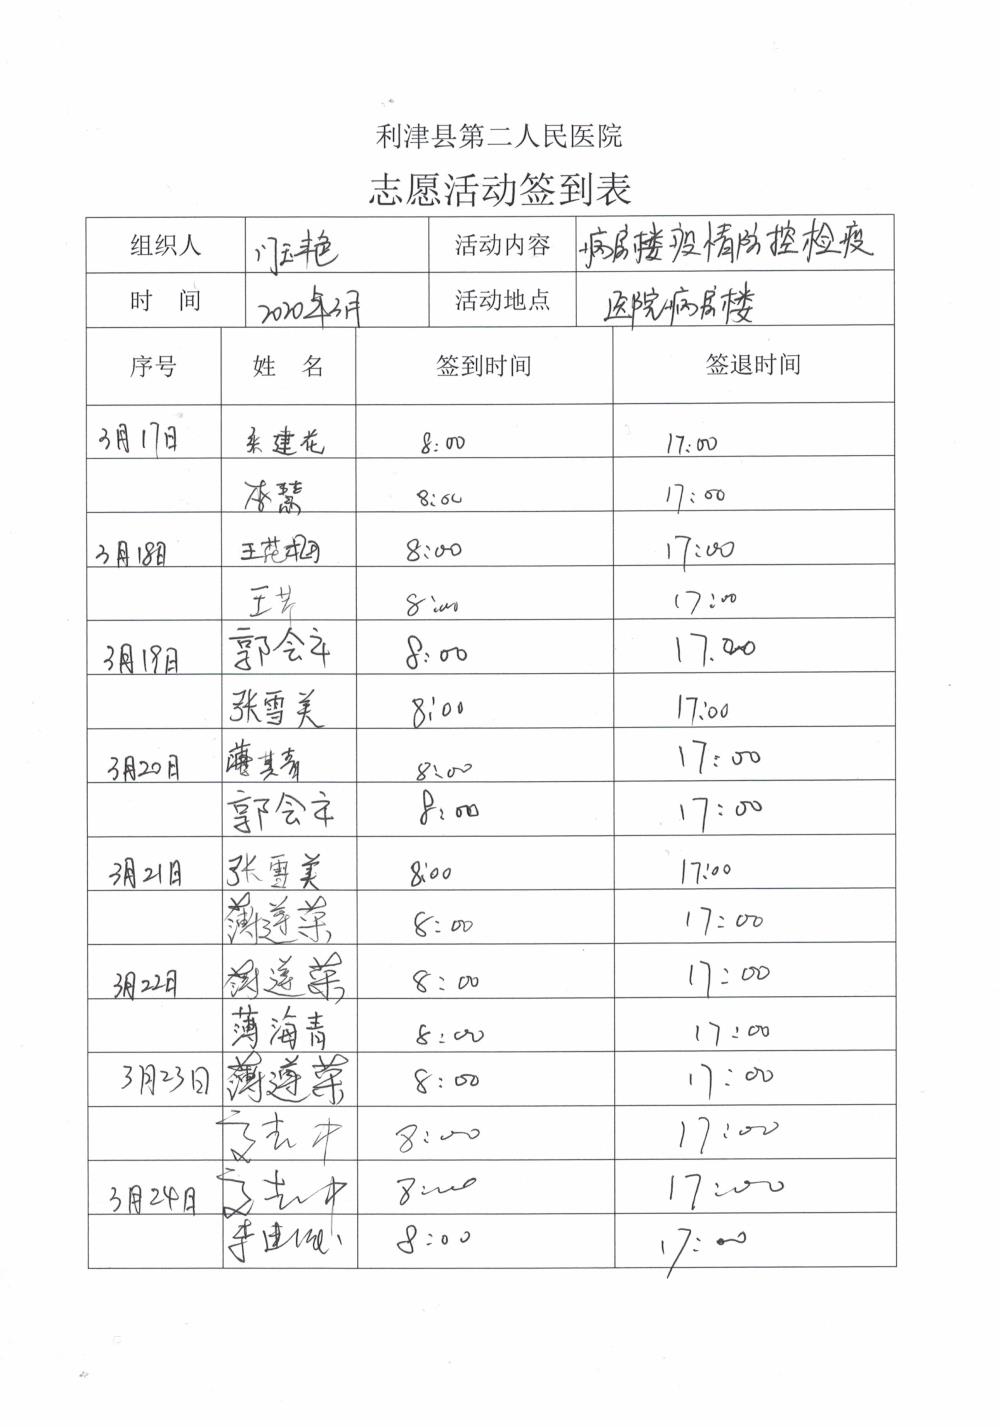 利津县第二人民医院
志愿活动签到表
组织人 门玉艳 活动内容 病房楼疫情防控检疫
时 间 2020年3月 活动地点 医院病房楼
序号 姓 名 签到时间 签退时间
3月17日 建花 8:00 17:00
李慧 8:00 17:00
3月18日 王范 8:00 17:00
王芹 8:00 17:00
3月19日 郭会平 8:00 17:00
张雪美 8:00 17:00
3月20日 薄其青 8:00 17:00
郭会平 8:00 17:00
3月21日 张雪美 8:00 17:00
薄莲菜 8:00 17:00
3月22日 薄莲菜 8:00 17:00
薄海青 8:00 17:00
3月23日 薄莲菜 8:00 17:00
8:00 17:00
3月24日 8:00 17:00
李建 8:00 17:00